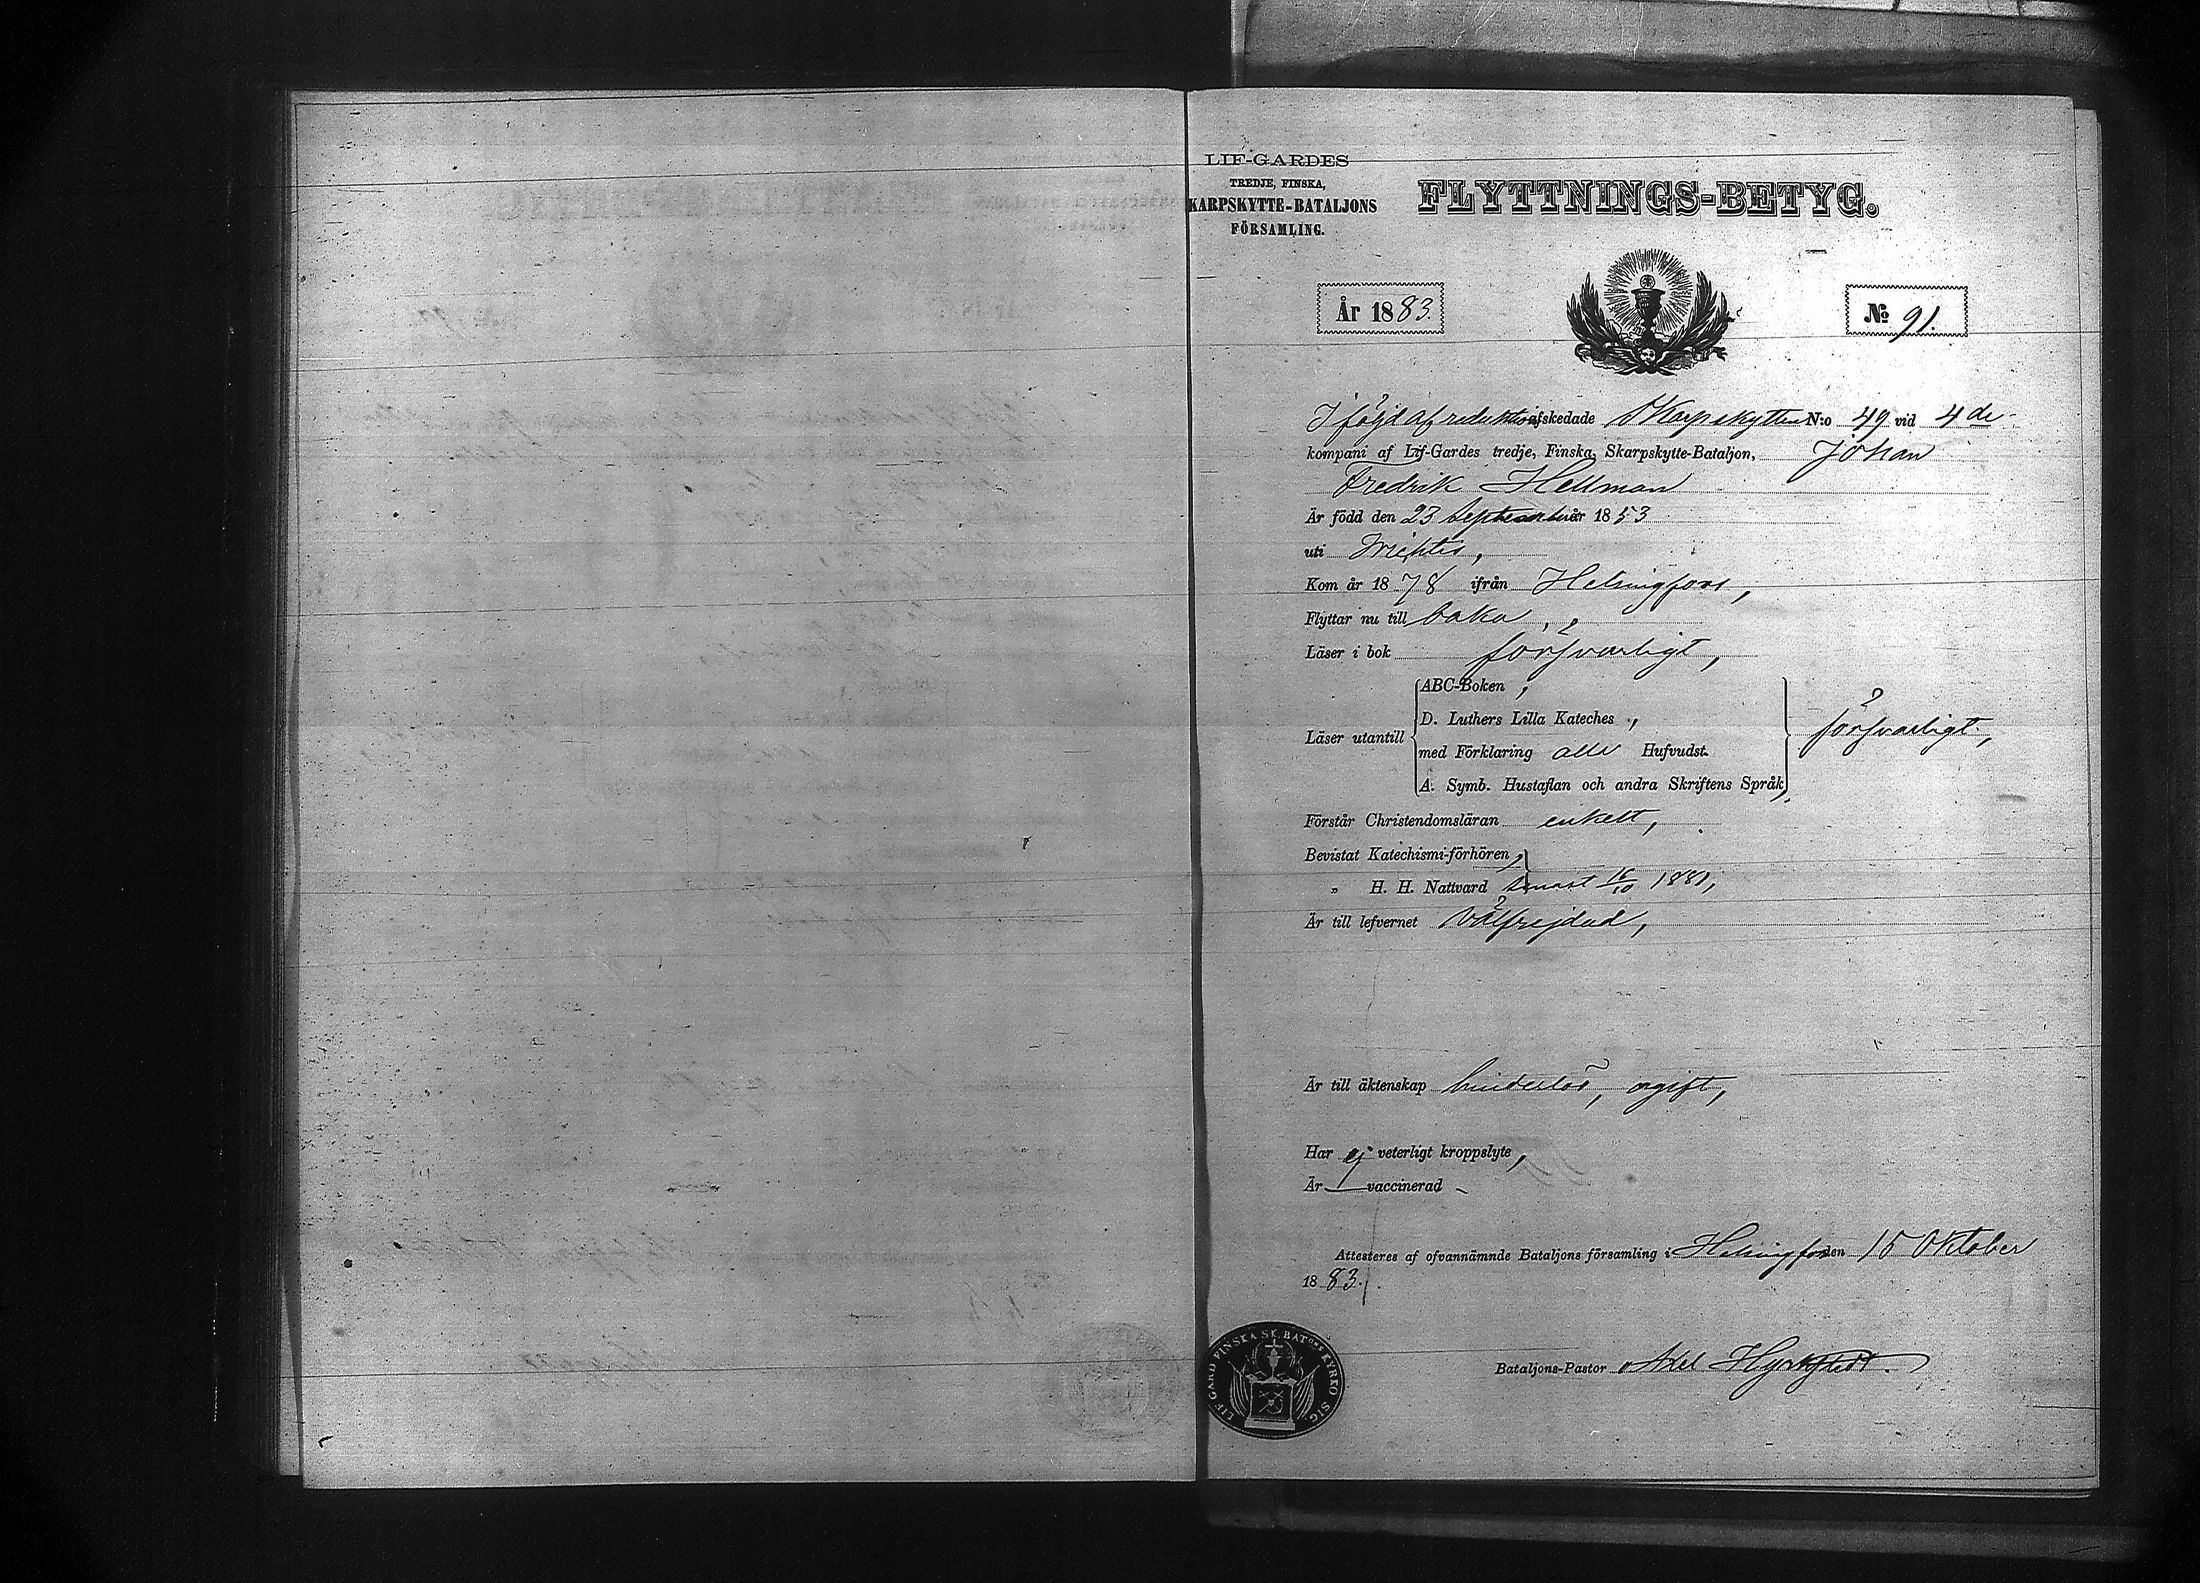 LIF-GARDES
TREDJE, FINSKA,
KARPSKYTTE-BATALJONS
FÖRSAMLING.
FLYTTNINGS-BETYG.
År 1883.
No 91.
I följd af reduktion afskedade Skarpskytten N:o 49 vid 4de
kompani af Lif-Gardes tredje, Finska, Skarpskytte-Bataljon, Johan
Fredrik Hellman
Är född den 23 September år 1853
uti Wichtis,
Kom år 1878 ifrån Helsingfors,
Flyttar nu till baka,
Läser i bok försvarligt,
Läser utantill
ABC-Boken,
D. Luthers Lilla Kateches,
med Förklaring alla Hufvudst.
A. Symb. Hustaflan och andra Skriftens Språk,
försvarligt,
Förstår Christendomsläran enkelt,
Bevistat Katechismi-förhören,
„ H. H. Nattvard senast 16/10 1881,
Är till lefvernet välfrejdad,
Är till äktenskap hinderlös, ogift,
Har ej veterligt kroppslyte,
Är — vaccinerad
Attesteres af ofvannämnde Bataljons församling i Helsingfors den 15 Oktober
1883.
LIF. GARD. FINSKA SK. BATns KYRKO SIG.
Bataljons-Pastor Axel Hyrkstedt.